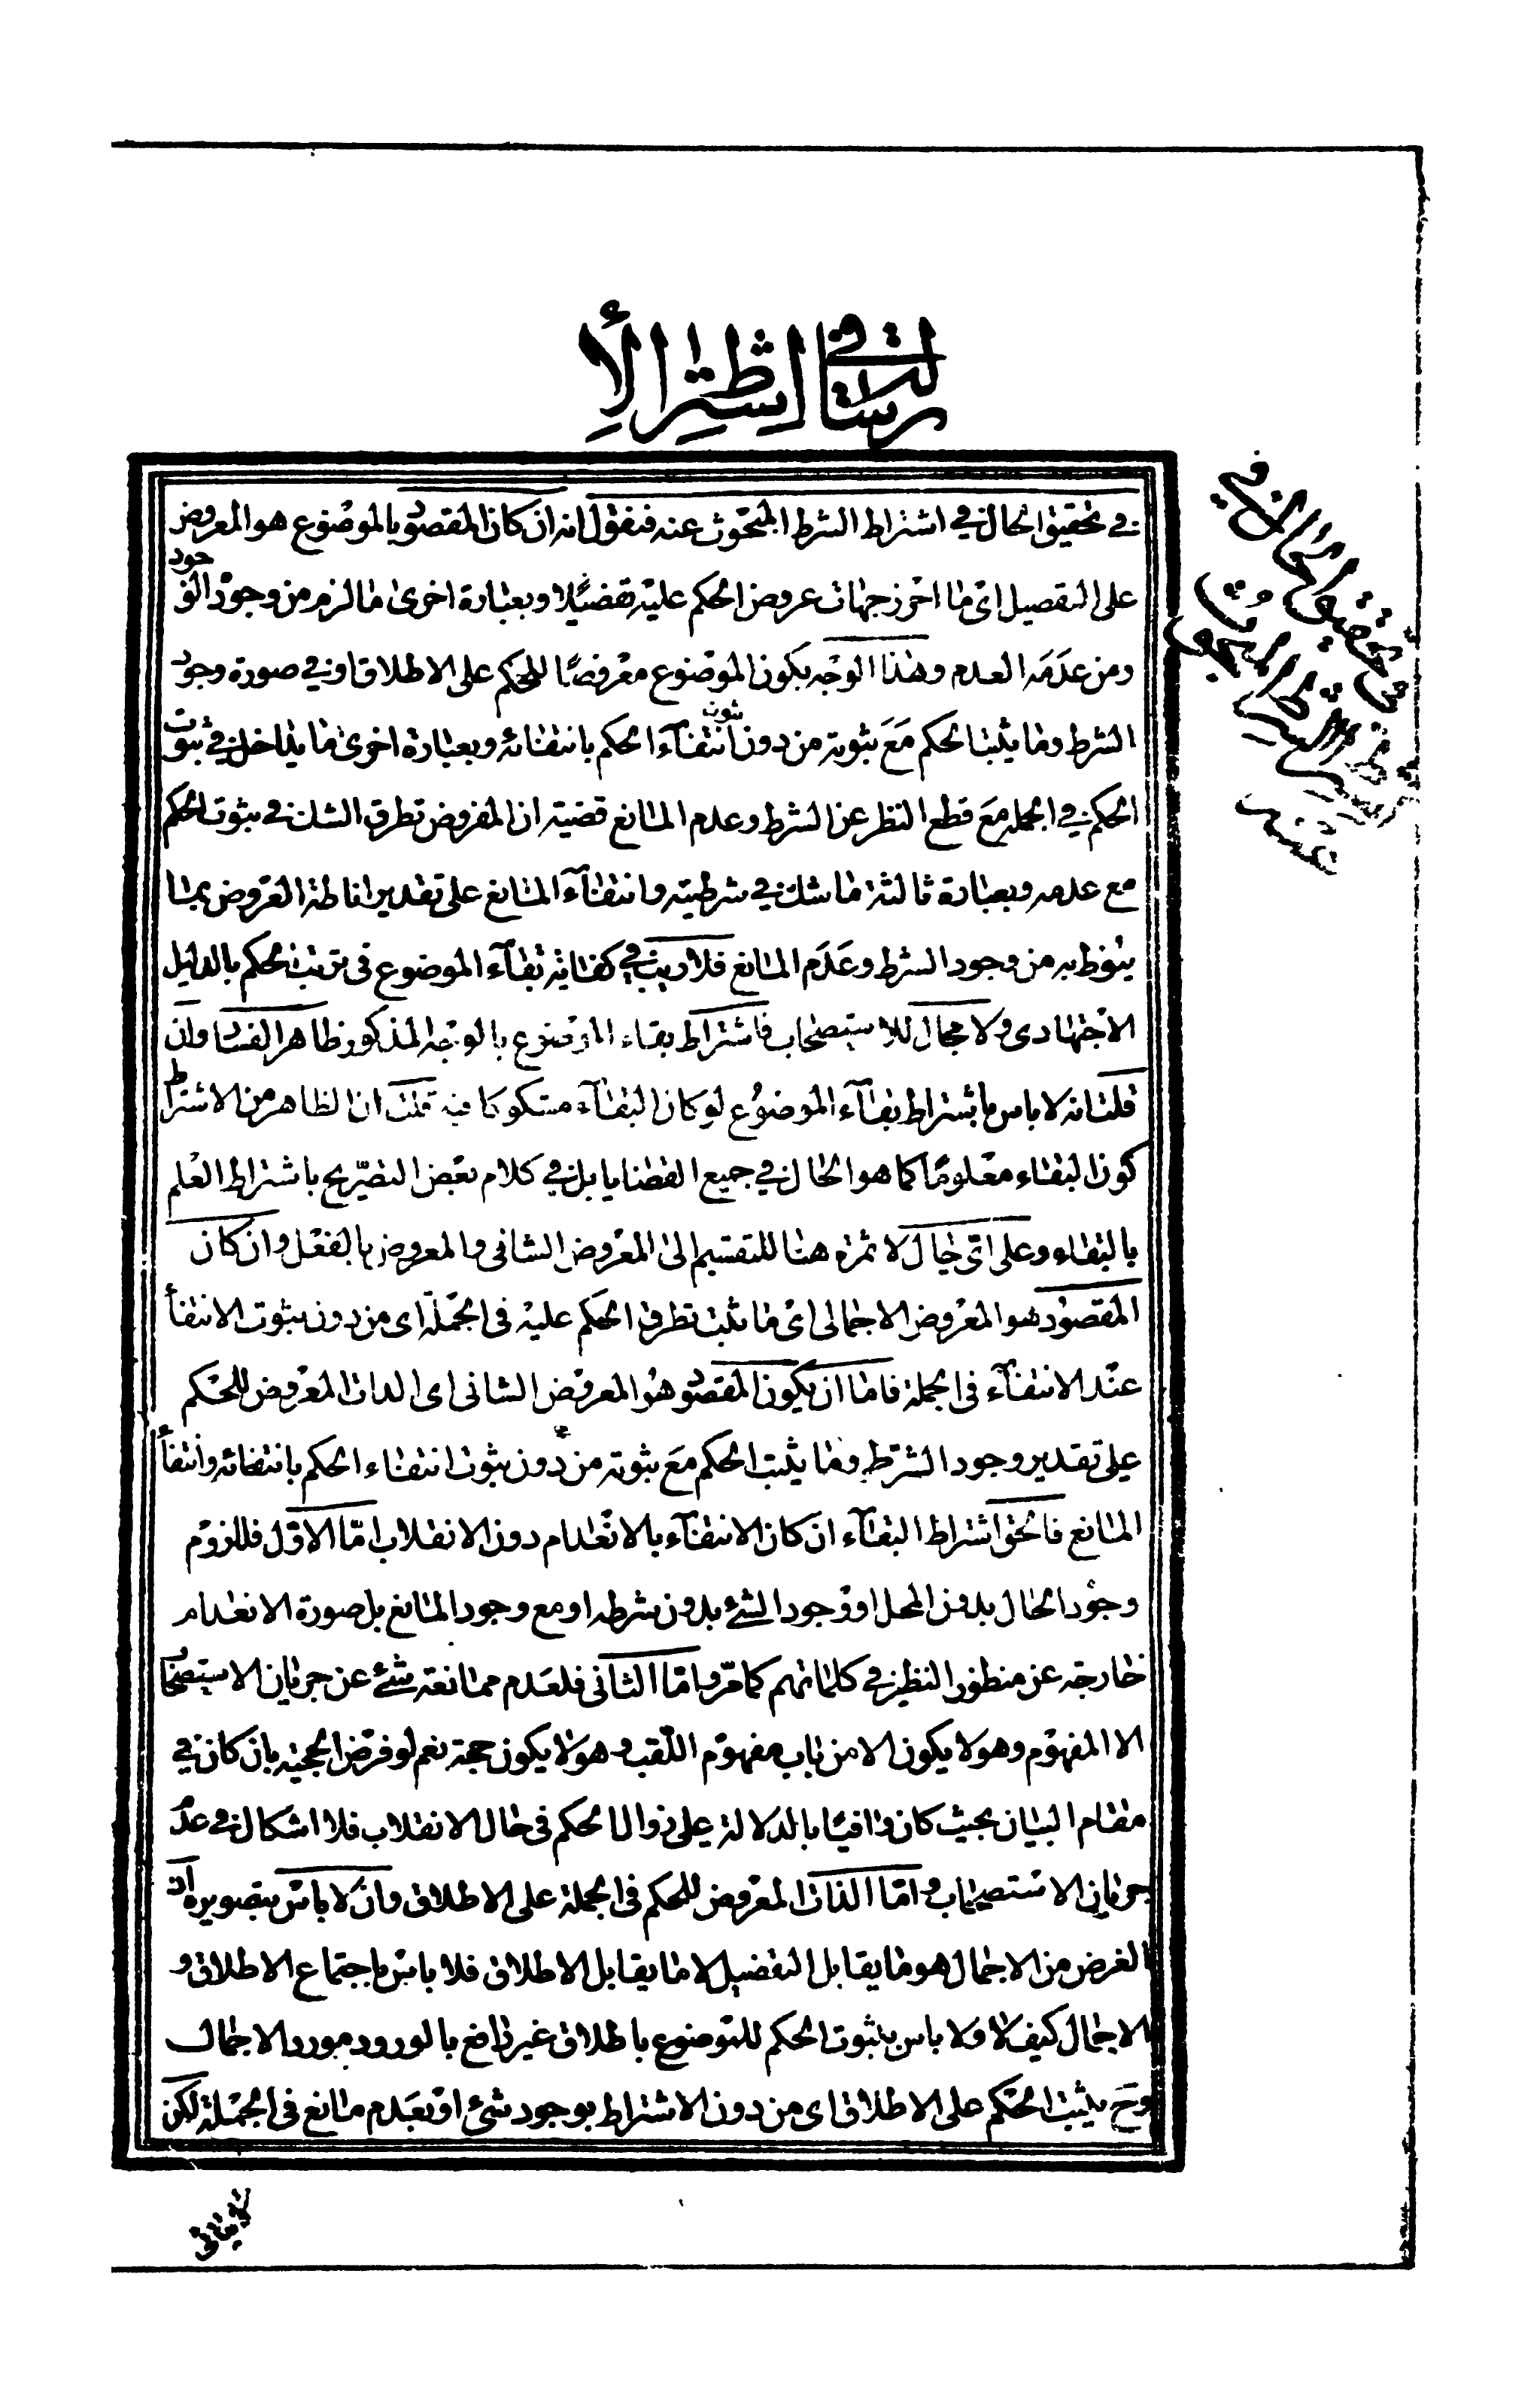 رسالة في اشتراط الأ
في تحقيق الحال في اشتراط الشرط المبحوث عنه فنقول انه ان كان المقصود بالموضوع هو المعروض
على التفصيل اى ما احرز جهات عروض الحكم عليه تفصيلا وبعبارة اخرى ما لزم من وجود الوجود
ومن عدمه العدم وهذا الوجه بكون الموضوع معروضا للحكم على الاطلاق او في صورة وجود
الشرط وما يثبت الحكم مع ثبوته من دون ثبوت انتفاء الحكم بانتفائه وبعبارة اخرى ما يداخل في ثبوت
الحكم في الجملة مع قطع النظر عن الشرط وعدم المانع قضية ان المفروض تطرق الشك في ثبوت الحكم
مع عدمه وبعبارة ثالثة ما شك في شرطيته وانتفاء المانع على تقدير اناطة العروض بما
ينوط به من وجود الشرط وعدم المانع فلا ريب في كفاية بقاء الموضوع في ترتب الحكم بالدليل
الاجتهادى ولا مجال للاستصحاب فاشتراط بقاء الموضوع بالوجه المذكور ظاهر الفساد وان
قلت انه لا باس باشتراط بقاء الموضوع لو كان البقاء مشكوكا فيه قلت ان الظاهر من الاشتراط
كون البقاء معلوما كما هو الحال في جميع القضايا بل في كلام بعض التصريح باشتراط العلم
بالبقاء وعلى اى حال لا ثمرة هنا للتقسيم الى المعروض الشانى والمعروض بالفعل وان كان
المقصود هو المعروض الاجمالى اى ما ثبت تطرق الحكم عليه فى الجملة اى من دون ثبوت الانتفاء
عند الانتفاء فى الجملة فاما ان يكون المقصود هو المعروض الشانى اى الذات المعروض للحكم
على تقدير وجود الشرط وما يثبت الحكم مع ثبوته من دون ثبوت انتفاء الحكم بانتفائه وانتفاء
المانع فالحق اشتراط البقاء ان كان الانتفاء بالانعدام دون الانقلاب اما الاول فللزوم
وجود الحال بدون المحل او وجود الشئ بدون شرطه او مع وجود المانع بل صورة الانعدام
خارجة عن منظور النظر في كلماتهم كما مر واما الثانى فلعدم ممانعة شئ عن جريان الاستصحاب
الا المفهوم وهو لا يكون الا من باب مفهوم اللقب وهو لا يكون حجة نعم لو فرض الحجية بان كان في
مقام البيان بحيث كان وافيا بالدلالة على زوال الحكم فى حال الانقلاب فلا اشكال في عدم
جريان الاستصحاب واما الذات المعروض للحكم فى الجملة على الاطلاق وان لا باس بتصويره اذ
الغرض من الاجمال هو ما يقابل التفصيل لا ما يقابل الاطلاق فلا باس باجتماع الاطلاق و
الاجمال كيف لا ولا باس بثبوت الحكم للموضوع باطلاق غير الورود مورد الاجمال
وح يثبت الحكم على الاطلاق اى من دون الاشتراط بوجود شئ او بعدم مانع فى الجملة لكن
في تحقيق الحال في
اشتراط الشرط المبحوث